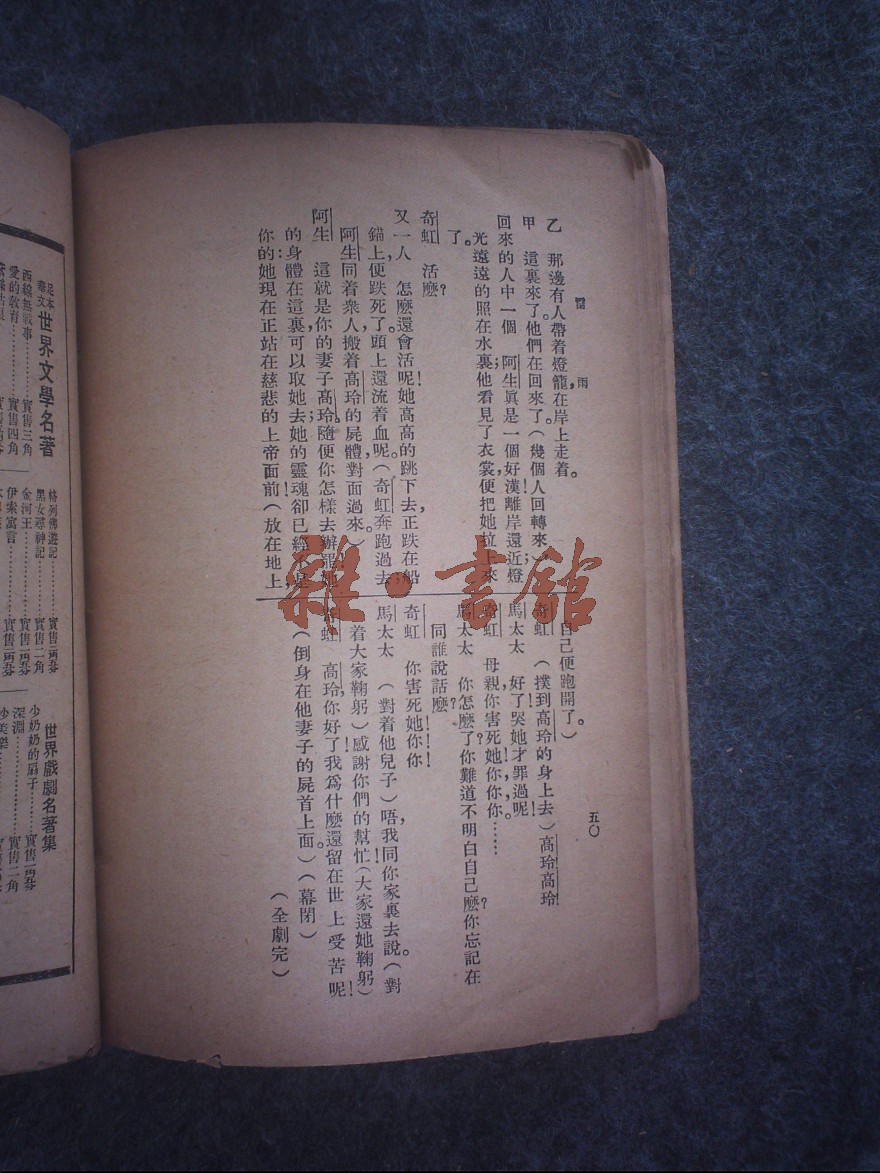 雷雨
五〇
乙　那邊有人帶着燈籠,在岸上走着。
甲　這裏來了。他們在回來了。(幾個人回轉來)
回來的人中一個　阿生眞是一個好漢!離岸還近;燈
光遠遠的照在水裏;他看見了衣裳,便把她拉上來
了。
奇虹　活麼?
又一人　怎麼還會活呢!她高高的跳下去,正跌在船
錨上,便跌死了。頭上還流着血呢。(奇虹奔跑過去,
阿生同着衆人搬着高玲的屍體,對面過來。)
阿生　這就是你的妻子高玲。隨便你怎樣去辦罷!她
的身體在這裏,可以取她去;她的靈魂卻已經不是
你的:她現在正站在慈悲的上帝面前!(放在地上,
自己便跑開了。)
奇虹　(撲到高玲的身上去)高玲!高玲!
馬太太　好了!哭她才罪過呢!
奇虹　母親,你害死她,你,你,你。……
馬太太　你怎麼了?你難道不明白自己麼?你忘記在
同誰說話麼?
奇虹　你害死她!你!你!
馬太太　(對着他兒子)唔,我同你家裏去說。(對
着大家鞠躬)感謝你們的幫忙!(大家還她鞠躬)
奇虹　高玲,你好了!我爲什麼還留在世上受苦呢!
(倒身在他妻子的屍首上面)(幕閉)
(全劇完)
足本
華文
世界文學名著
西線無戰事…………實售三角
愛的教育…………實售四角
格列佛遊記…………實售二角半
黑女尋神記…………實售二角
金河王…………實售一角半
伊索寓言…………實售一角半
世界戲劇名著集
少奶奶的扇子…………實售一角半
深淵…………實售二角
沙美樂
雜·書館